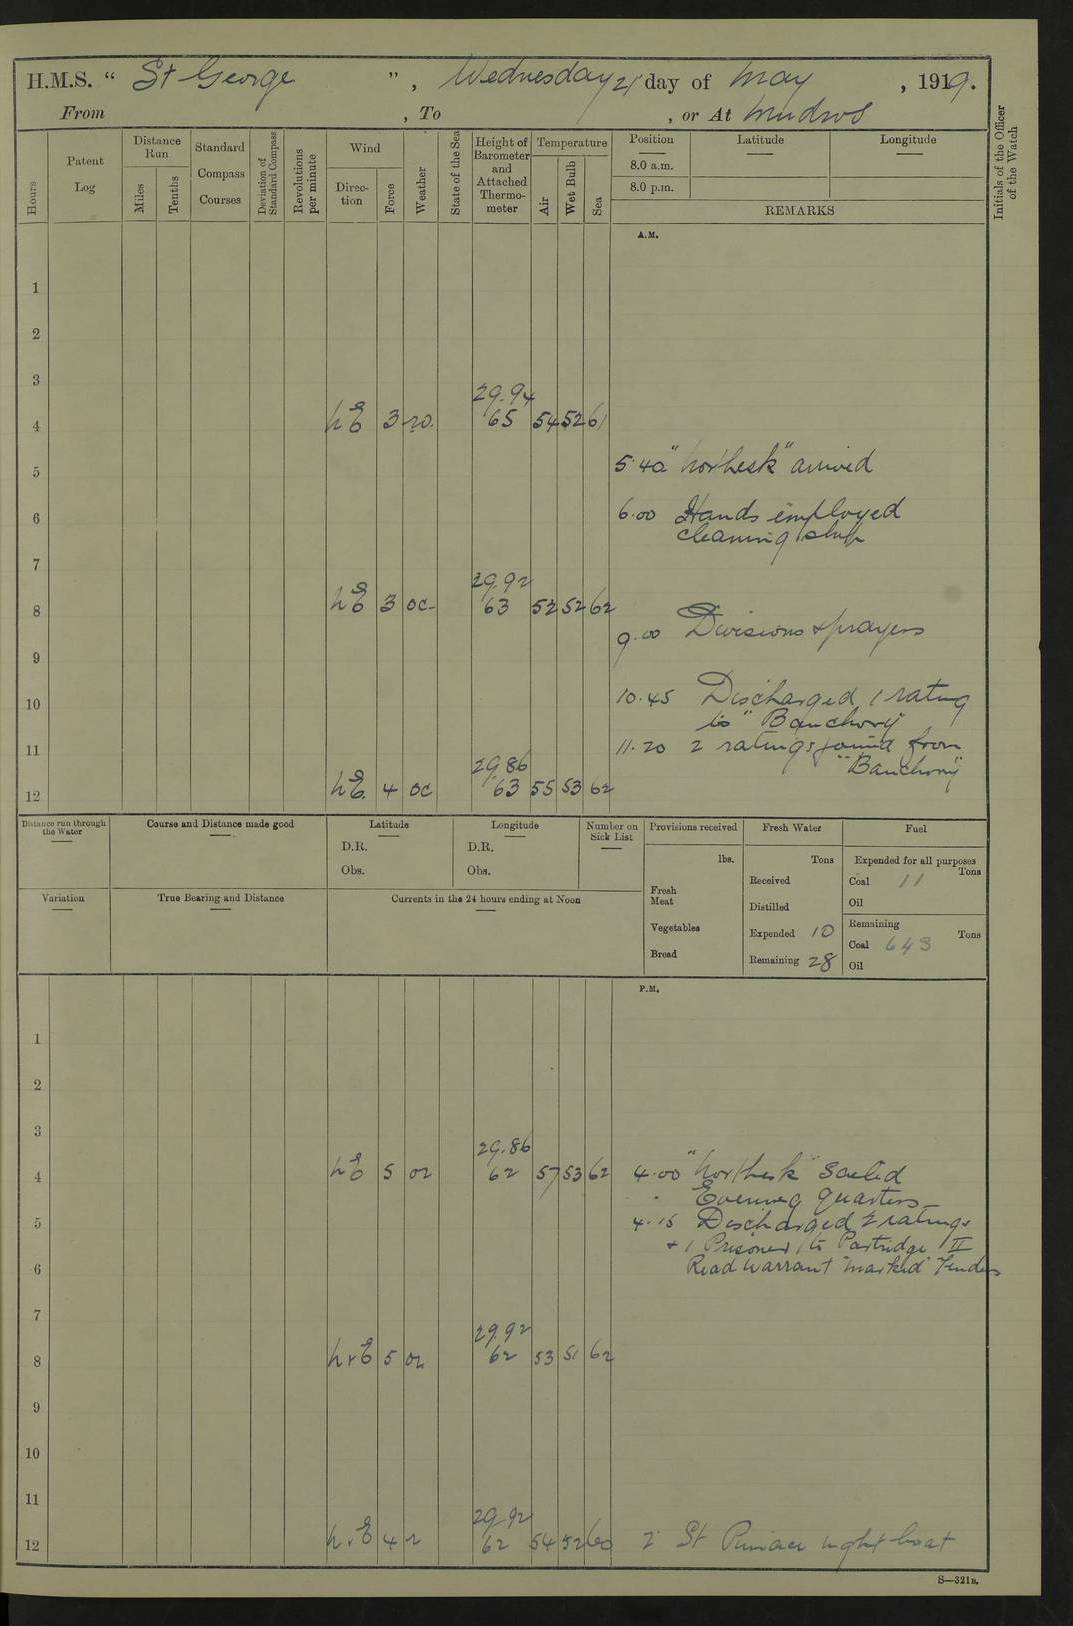 H.M.S. “ St George ” , Wednesday 21 day of May , 1919.
From , To , or At Mudros
Hours
Patent Log
Distance Run
Miles
Tenths
Standard Compass Courses
Deviation of Standard Compass
Revolutions per minute
Wind
Direction
Force
Weather
State of the Sea
Height of Barometer and Attached Thermometer
Temperature
Air
Wet Bulb
Sea
Position
8.0 a.m.
8.0 p.m.
Latitude
Longitude
REMARKS
Initials of the Officer of the Watch
A.M.
1
2
3
29.94
4 NE 3 65 54 52 61
5 5.40 "Northesk" arrived
6 6.00 Hands employed
cleaning ship
7
29.92
8 NE 3 oc 63 52 52 62
9.00 Divisions & prayers
9
10 10.45 Discharged 1 rating
to "Banchory"
11 11.20 2 ratings joined from
"Banchory"
29.86
12 NE 4 oc 63 55 53 62
Distance run through the Water
Course and Distance made good
Latitude
D.R.
Obs.
Longitude
D.R.
Obs.
Number on Sick List
Provisions received
lbs.
Fresh Meat
Vegetables
Bread
Fresh Water
Tons
Received
Distilled
Expended 10
Remaining 28
Fuel
Expended for all purposes
Tons
Coal 11
Oil
Remaining
Tons
Coal 643
Oil
Variation
True Bearing and Distance
Currents in the 24 hours ending at Noon
P.M.
1
2
3
29.86
4 NE 5 or 62 57 53 62 4.00 "Northesk" Sailed
Evening quarters
5 4.15 Discharged 2 ratings
+ 1 Prisoner to Partridge II
6 Read Warrant
7
29.92
8 5 or 62 53 51 62
9
10
11
29.92
12 4 r 62 54 52 60 St Pinnace night boat
S—321B.